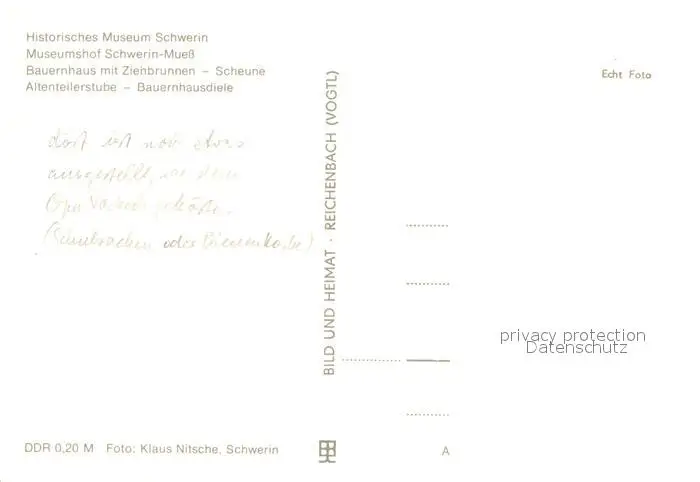 Historisches Museum Schwerin
Museumshof Schwerin-Mueß
Bauernhaus mit Ziehbrunnen – Scheune
Altenteilerstube – Bauernhausdiele
Echt Foto
dort ist noch etwas
ausgestellt, dem
Opa
oder Bienenkorb)
BILD UND HEIMAT · REICHENBACH (VOGTL)
privacy protection
Datenschutz
DDR 0,20 M Foto: Klaus Nitsche, Schwerin
A